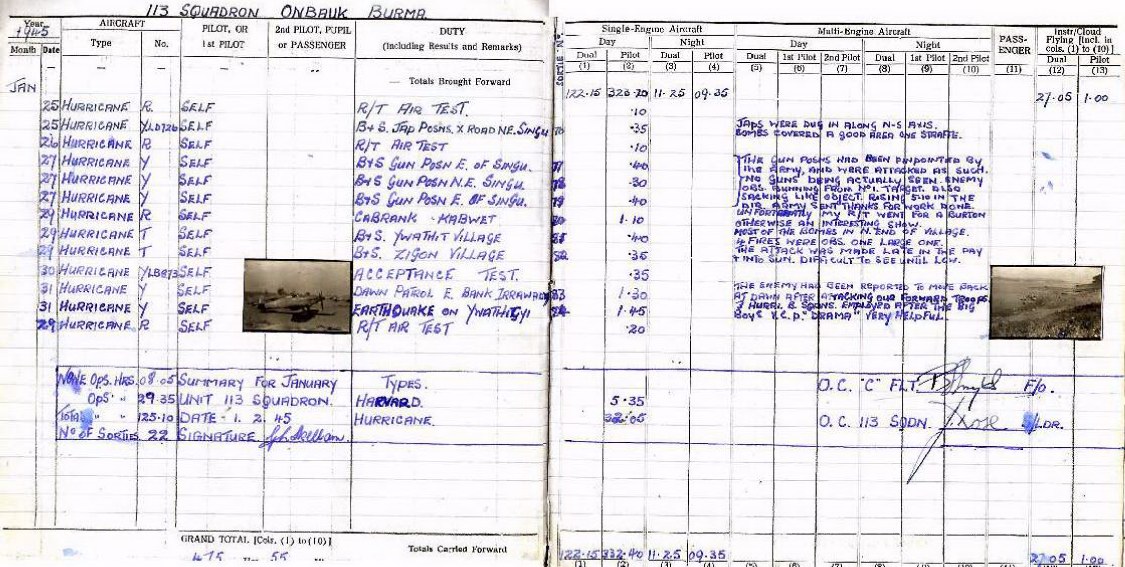 113 SQUADRON ONBAUK BURMA
Year 1945 AIRCRAFT PILOT, OR 1st PILOT 2nd PILOT, PUPIL or PASSENGER DUTY (Including Results and Remarks)
Month Date Type No.
— — — — — ,, — Totals Brought Forward
JAN
25 HURRICANE R. SELF R/T AIR TEST.
25 HURRICANE SELF B+S. JAP POSNS. X ROAD NE. SINGU
26 HURRICANE R SELF R/T AIR TEST
27 HURRICANE Y SELF B+S GUN POSN E. OF SINGU.
27 HURRICANE Y SELF B+S GUN POSN N.E. SINGU.
27 HURRICANE Y SELF B+S GUN POSN E. OF SINGU.
29 HURRICANE R SELF CABRANK - KABWET
29 HURRICANE T SELF B+S. YWATHIT VILLAGE
29 HURRICANE T SELF B+S. ZIGON VILLAGE
30 HURRICANE SELF ACCEPTANCE TEST.
31 HURRICANE Y SELF DAWN PATROL E. BANK IRRAWADY
31 HURRICANE Y SELF EARTHQUAKE ON YWATHITGYI
29 HURRICANE R SELF R/T AIR TEST
NONE OPS. HRS. 08.05 SUMMARY FOR JANUARY TYPES.
OPS. " 29.35 UNIT 113 SQUADRON. HARVARD.
TOTAL " " 125.10 DATE - 1. 2. 45 HURRICANE.
No OF SORTIES 22 SIGNATURE
GRAND TOTAL [Cols. (1) to (10)]
475 Hrs. 55
Totals Carried Forward
SORTIE No. Single-Engine Aircraft Multi-Engine Aircraft PASS-ENGER Instr/Cloud Flying [Incl. in cols. (1) to (10)]
Day Night Day Night
Dual Pilot Dual Pilot Dual 1st Pilot 2nd Pilot Dual 1st Pilot 2nd Pilot Dual Pilot
(1) (2) (3) (4) (5) (6) (7) (8) (9) (10) (11) (12) (13)
122.15 320.20 11.25 09.35 27.05 1.00
.10
.35 JAPS WERE DUG IN ALONG N-S AXIS.
BOMBS COVERED A GOOD AREA ONE STRAFFE.
.10
77 .40 THE GUN POSNS HAD BEEN PINPOINTED BY
THE ARMY, AND WERE ATTACKED AS SUCH.
78 .30 NO GUNS BEING ACTUALLY SEEN. ENEMY
OBS. RUNNING FROM No1. TARGET. ALSO
79 .40 SACKING LIKE OBJECT. RISING IN THE
AIR. ARMY SENT THANKS FOR WORK DONE.
80 1.10 UNFORTUNATLY MY R/T WENT FOR A BURTON
OTHERWISE AN INTERESTING SHOW.
.40 MOST OF THE BOMBS IN N. END OF VILLAGE.
4 FIRES WERE OBS. ONE LARGE ONE.
82 .35 THE ATTACK WAS MADE LATE IN THE DAY
+ INTO SUN. DIFFICULT TO SEE UNTIL LOW.
.35
83 1.30 THE ENEMY HAD BEEN REPORTED TO MOVE BACK
AT DAWN AFTER ATTACKING OUR FORWARD TROOPS.
84 1.45 HURRI. SQDNS. EMPLOYED AFTER THE BIG
BOYS V.C.P. "DRAMA" VERY HELPFUL.
.20
O.C. "C" FLT F/O.
5.35
32.05 O.C. 113 SQDN. S/LDR.
122.15 332.40 11.25 09.35 27.05 1.00
(1) (2) (3) (4) (5) (6) (7) (8) (9) (10) (11) (12) (13)